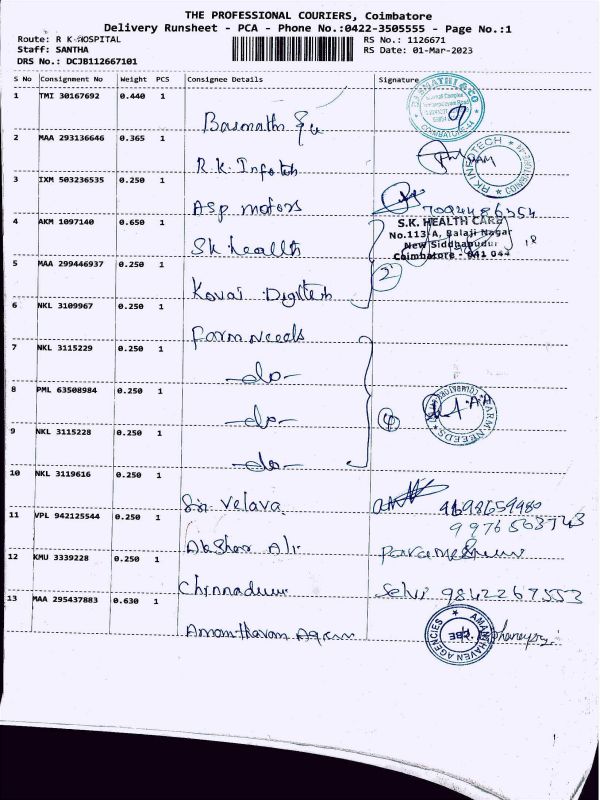 THE PROFESSIONAL COURIERS, Coimbatore
Delivery Runsheet - PCA - Phone No.:0422-3505555 - Page No.:1
Route: R K HOSPITAL
RS No.: 1126671
Staff: SANTHA
RS Date: 01-Mar-2023
DRS No.: DCJB112667101
S No Consignment No Weight PCS Consignee Details Signature
1 TMI 30167692 0.440 1
COIMBATORE
2 MAA 293136646 0.365 1 R.K. Infotech
RK INFOTECH COIMBATORE
3 IXM 503236535 0.250 1 Asp motors
7094486354
4 AKM 1097140 0.650 1 SK health
S.K. HEALTH CARE
No.113-A, Balaji Nagar
New Siddhapudur
Coimbatore - 641 044
5 MAA 299446937 0.250 1 Kovai Digitech
2
6 NKL 3109967 0.250 1 Farm needs
7 NKL 3115229 0.250 1 -do-
8 PML 63508984 0.250 1 -do-
4
FARM NEEDS
9 NKL 3115228 0.250 1 -do-
10 NKL 3119616 0.250 1 Sri Velava
9698659980
11 VPL 942125544 0.250 1 Akshar Ali
9976503743
12 KMU 3339228 0.250 1 Chinnadurai
Selvi 9842267553
13 MAA 295437883 0.630 1
AMANTHAVEN AGENCIES
CBE